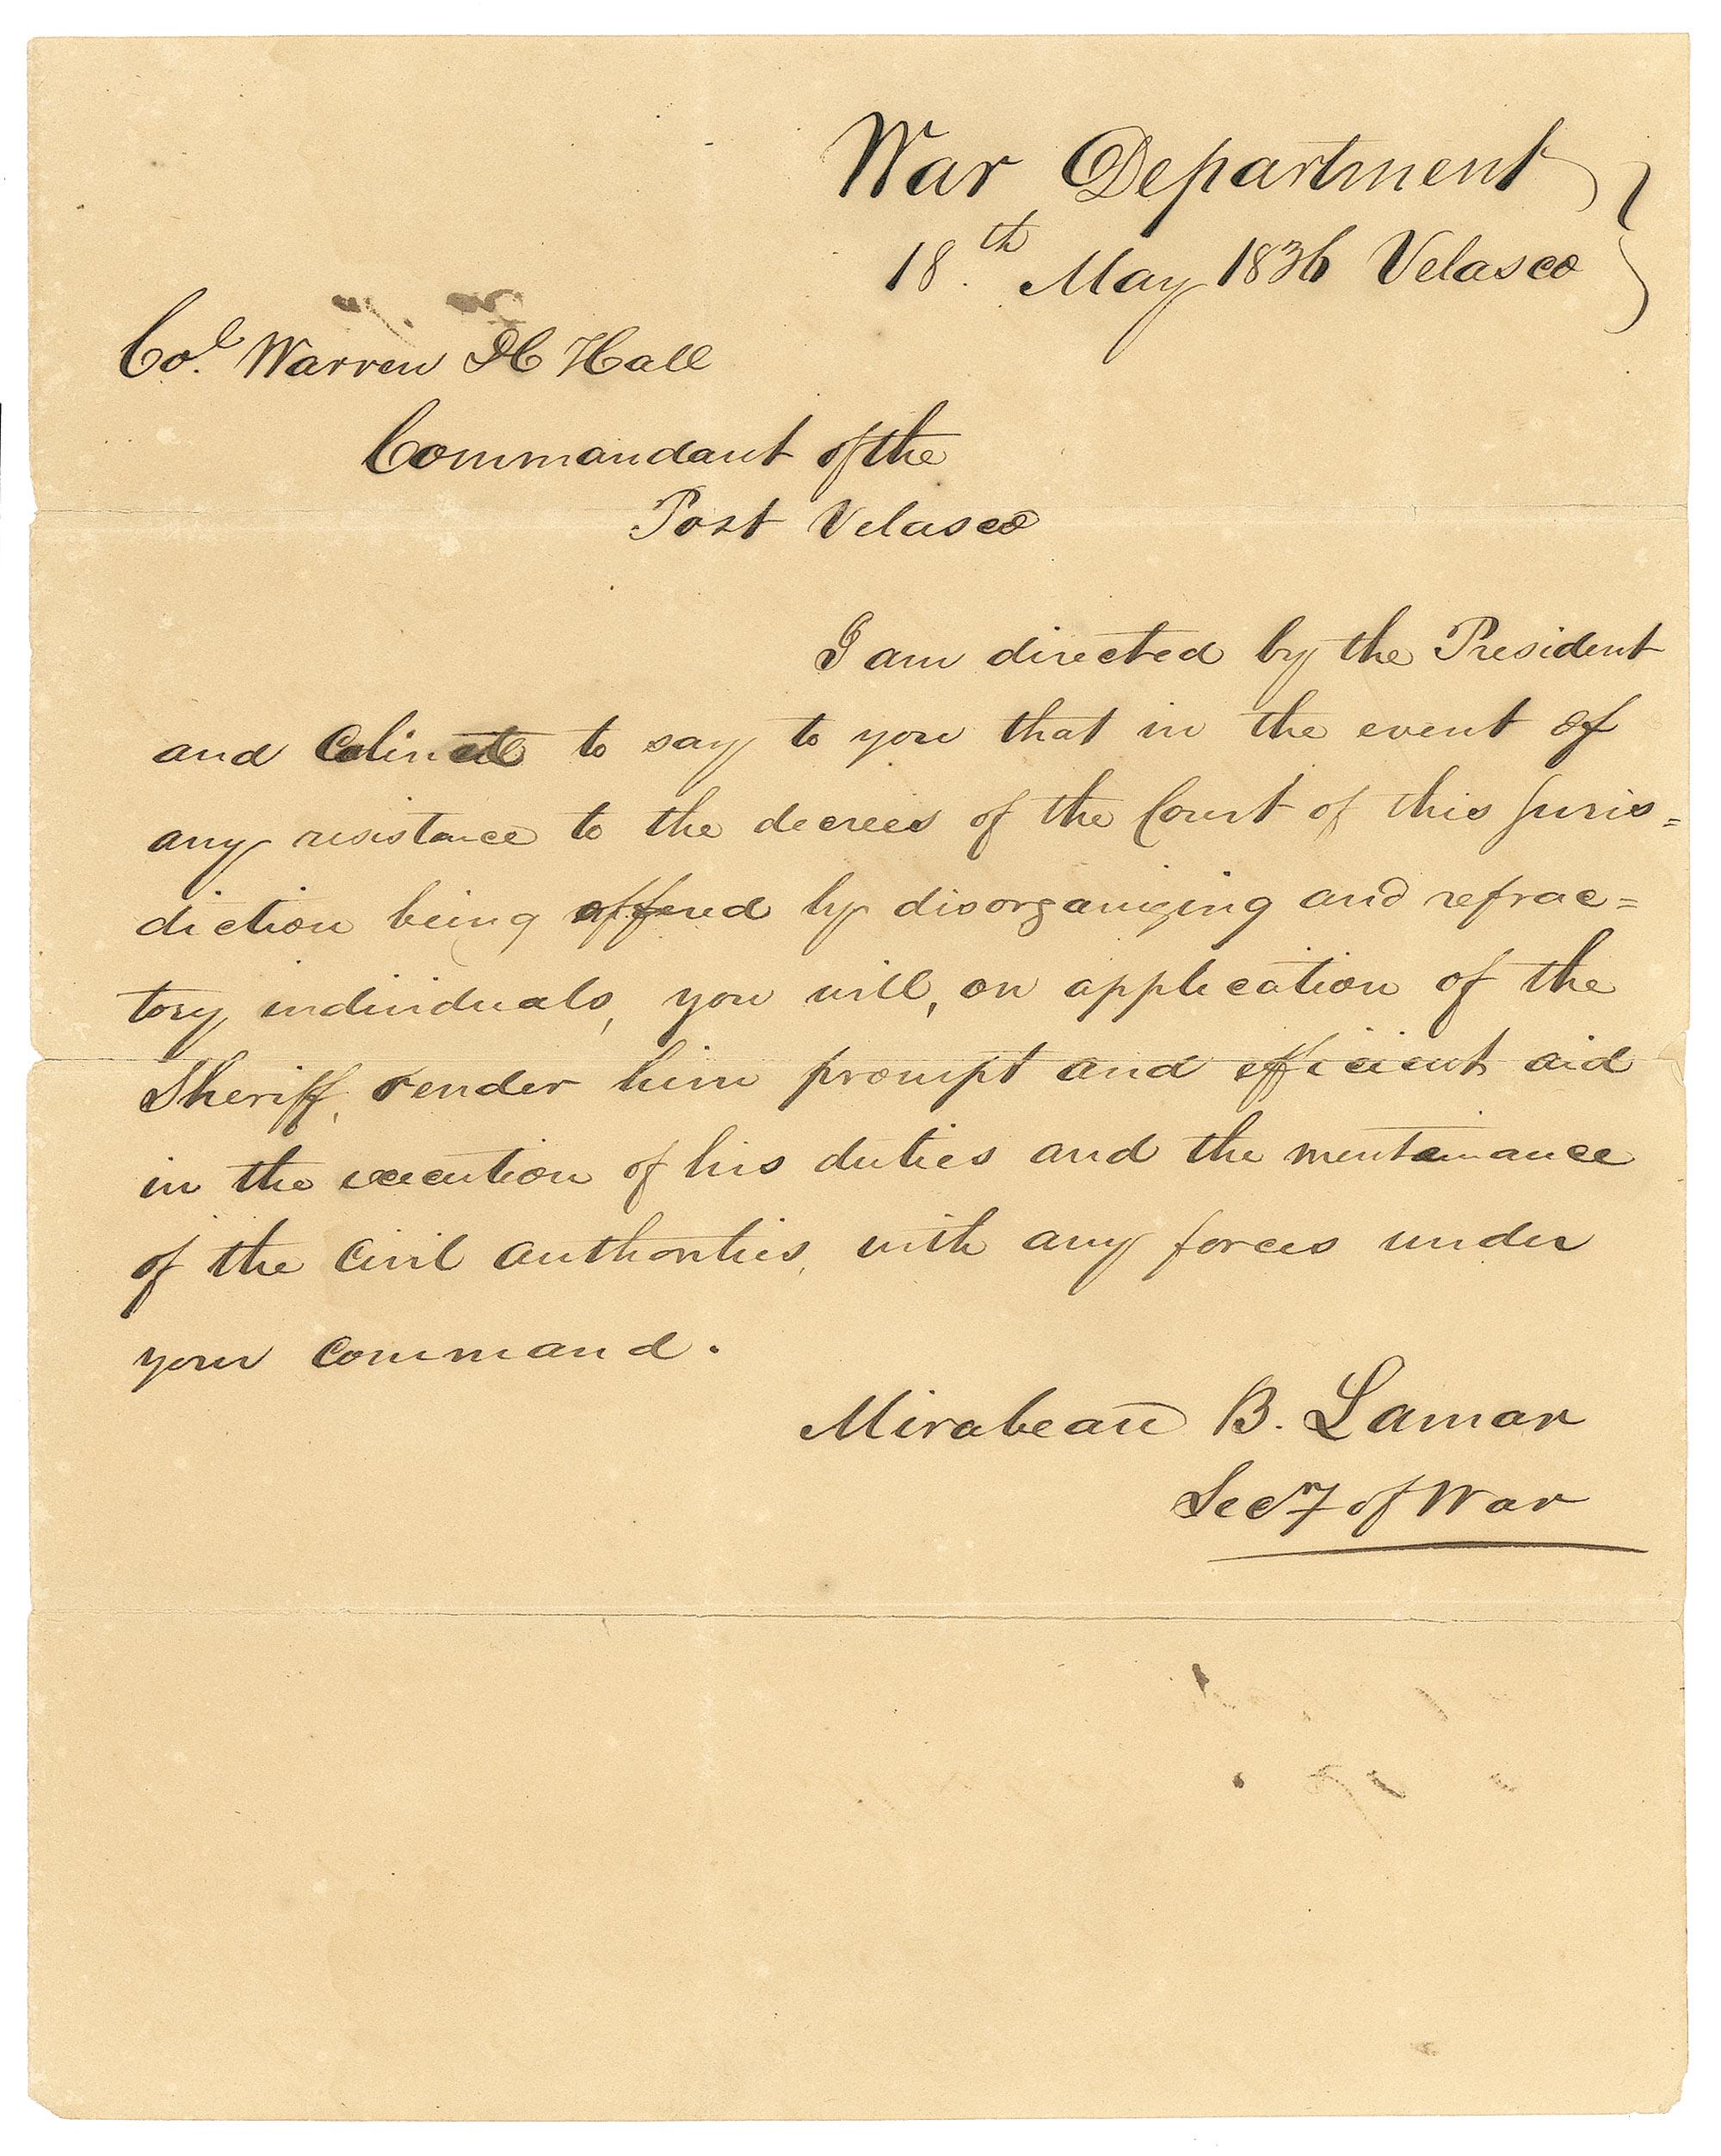 War Department
18.th May 1836 Velasco
Col. Warren D C Hall
Commandant of the
Post Velasco
I am directed by the President
and Cabinet to say to you that in the event of
any resistance to the decrees of the Court of this Juris=
diction being offered by disorganizing and refrac=
tory individuals, you will, on application of the
Sheriff, render him prompt and efficient aid
in the execution of his duties and the mentainance
of the Civil authorities, with any forces under
your command.
Mirabeau B. Lamar
Secry of War